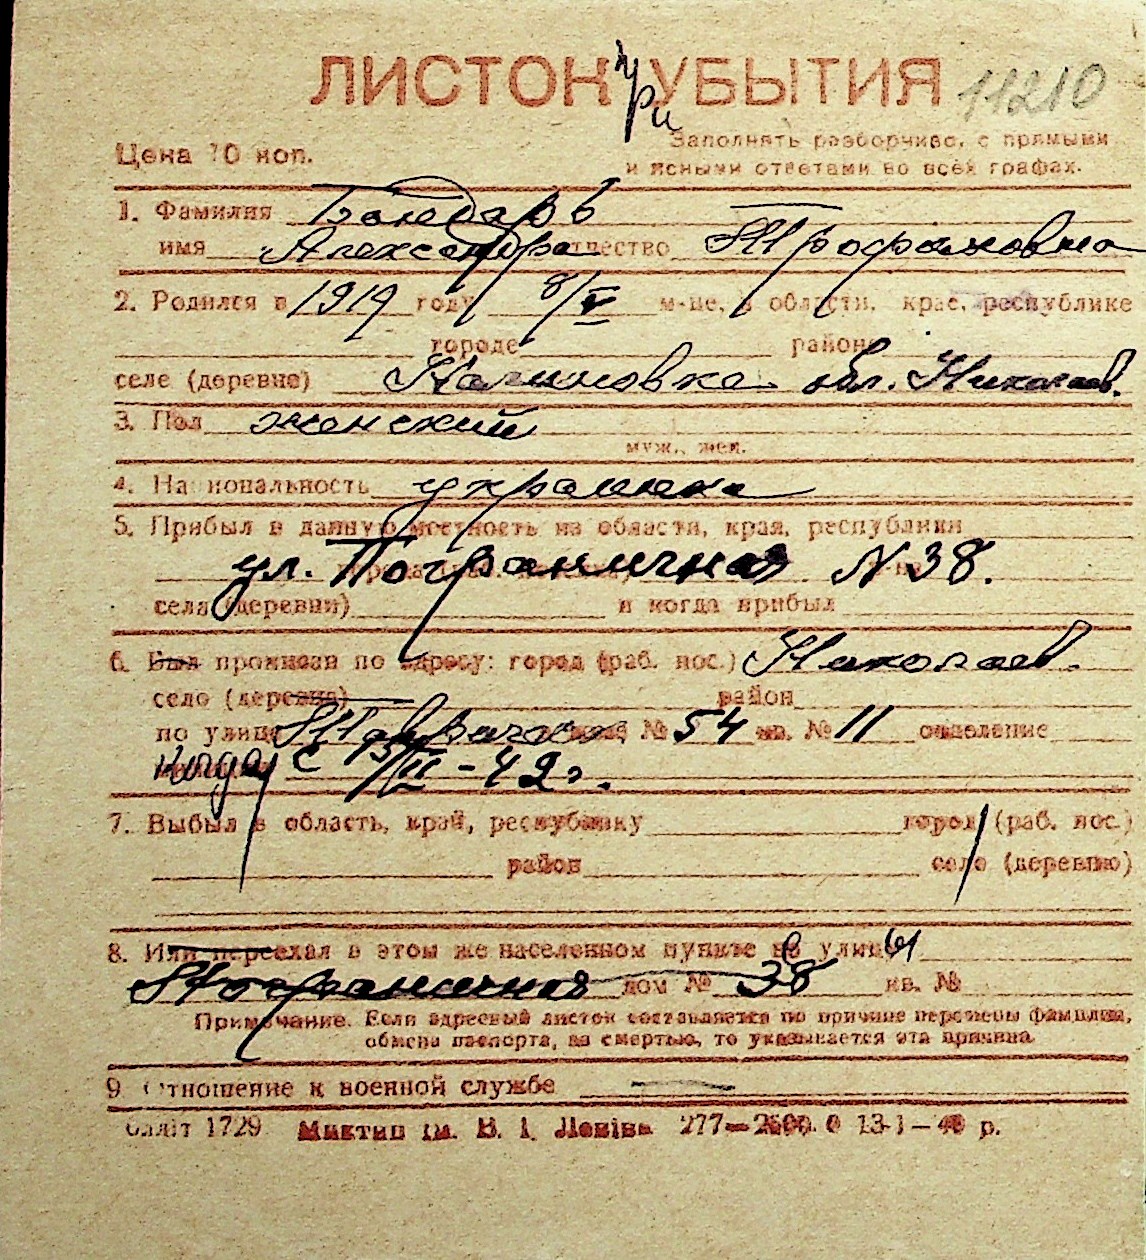 ЛИСТОК при УБЫТИЯ 11210
Цена 10 коп.
Заполнять разборчиво, с прямыми
и ясными ответами во всех графах.
1. Фамилия Бондарь
имя Александра отчество Трофимовна
2. Родился в 1919 году 8/V м-це, в области, крае, республике
городе районе
селе (деревне) Калиновка обл. Николаев.
3. Пол женский
муж., жен.
4. Национальность украинка
5. Прибыл в данную местность из области, края, республики
ул. Пограничная N 38.
села (деревни) и когда прибыл
6. Был прописан по адресу: город (раб. пос.) Николаев.
село (деревня) район
по улице Таврическая № 54 кв. № 11 отделение
когда с 15/II-42 г.
7. Выбыл в область, край, республику город (раб. пос.)
район село (деревню)
8. Или переехал в этом же населенном пункте с улицы
Пограничная дом № 38 кв. №
Примечание. Если адресный листок составляется по причине перемены фамилии,
обмена паспорта, за смертью, то указывается эта причина.
9 Отношение к военной службе —
Обліт 1729 Миктип ім. В. І. Леніна 277—2500. 13-1—40 р.